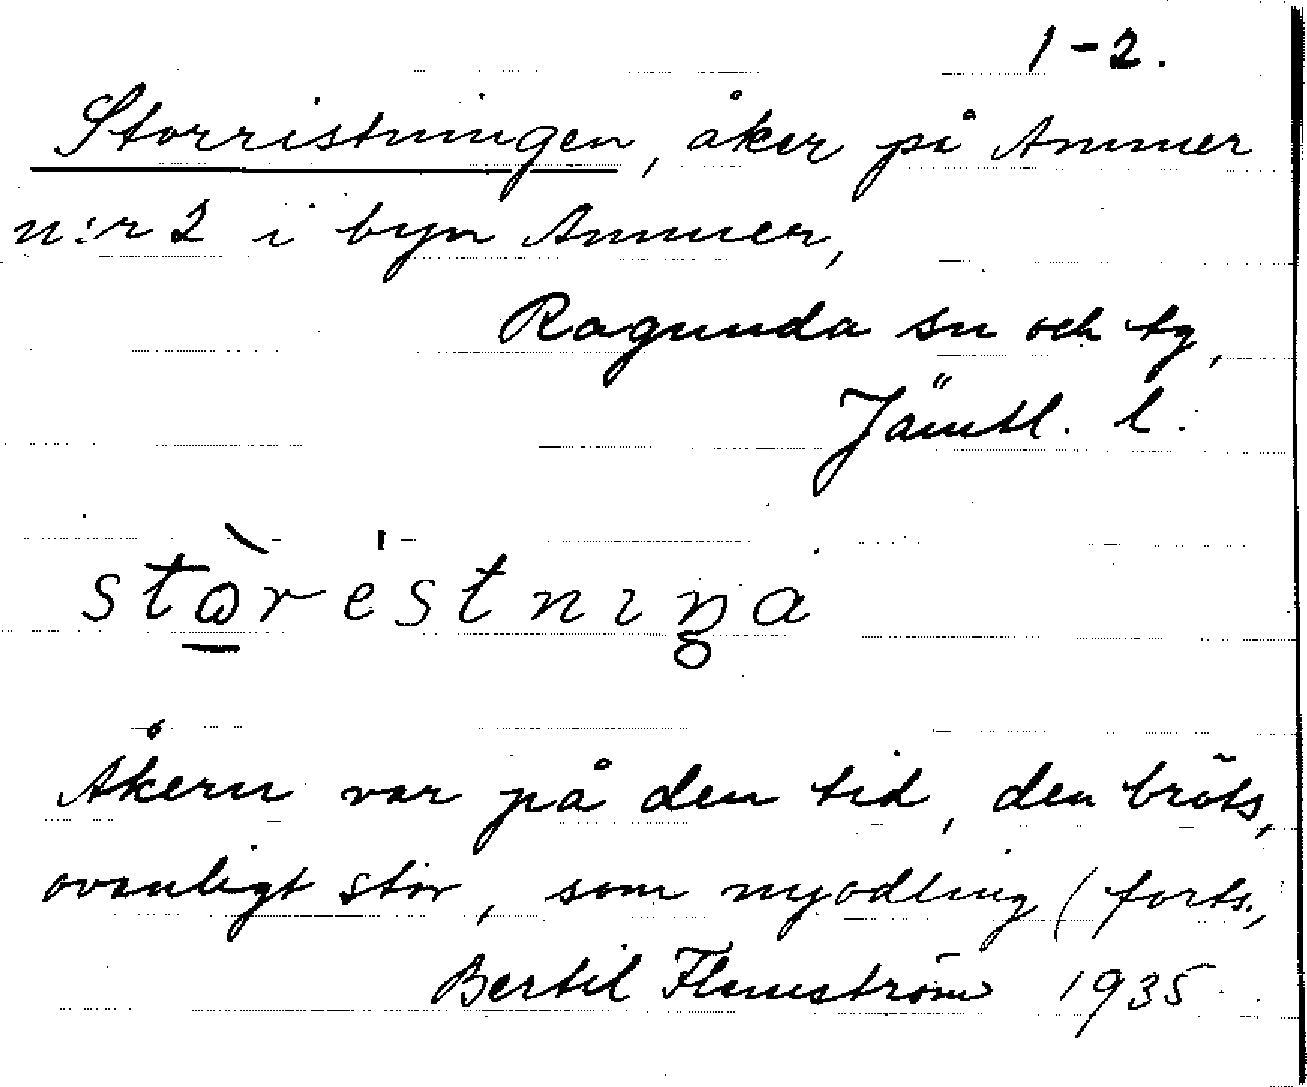 1-2.
Storristningen, åker på Ammer
n:r 2 i byn Ammer,
Ragunda sn och tg,
Jämtl. l.
stòrestniŋa
Åkern var på den tid, den bröts,
ovanligt stor, som nyodling (forts.,
Bertil Flemström 1935